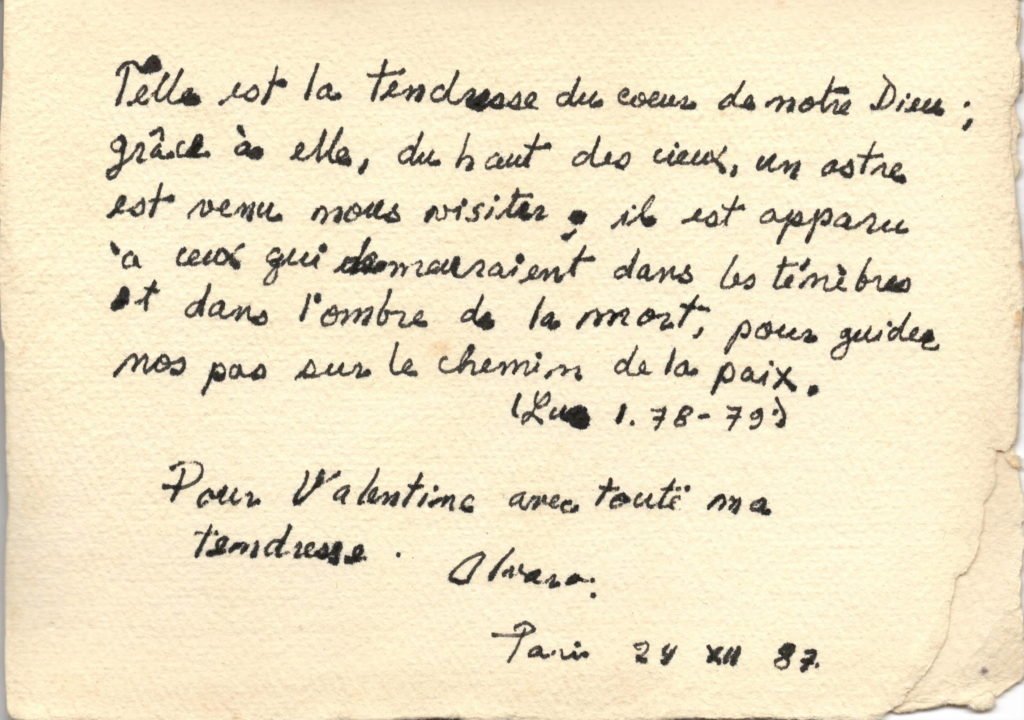 Telle est la tendresse du coeur de notre Dieu ;
grâce à elle, du haut des cieux, un astre
est venu nous visiter ; il est apparu
à ceux qui demeuraient dans les ténèbres
et dans l'ombre de la mort, pour guider
nos pas sur le chemin de la paix.
(Luc 1. 78-79)
Pour Valentine avec toute ma
tendresse.
Alvaro.
Paris 24 XII 87.